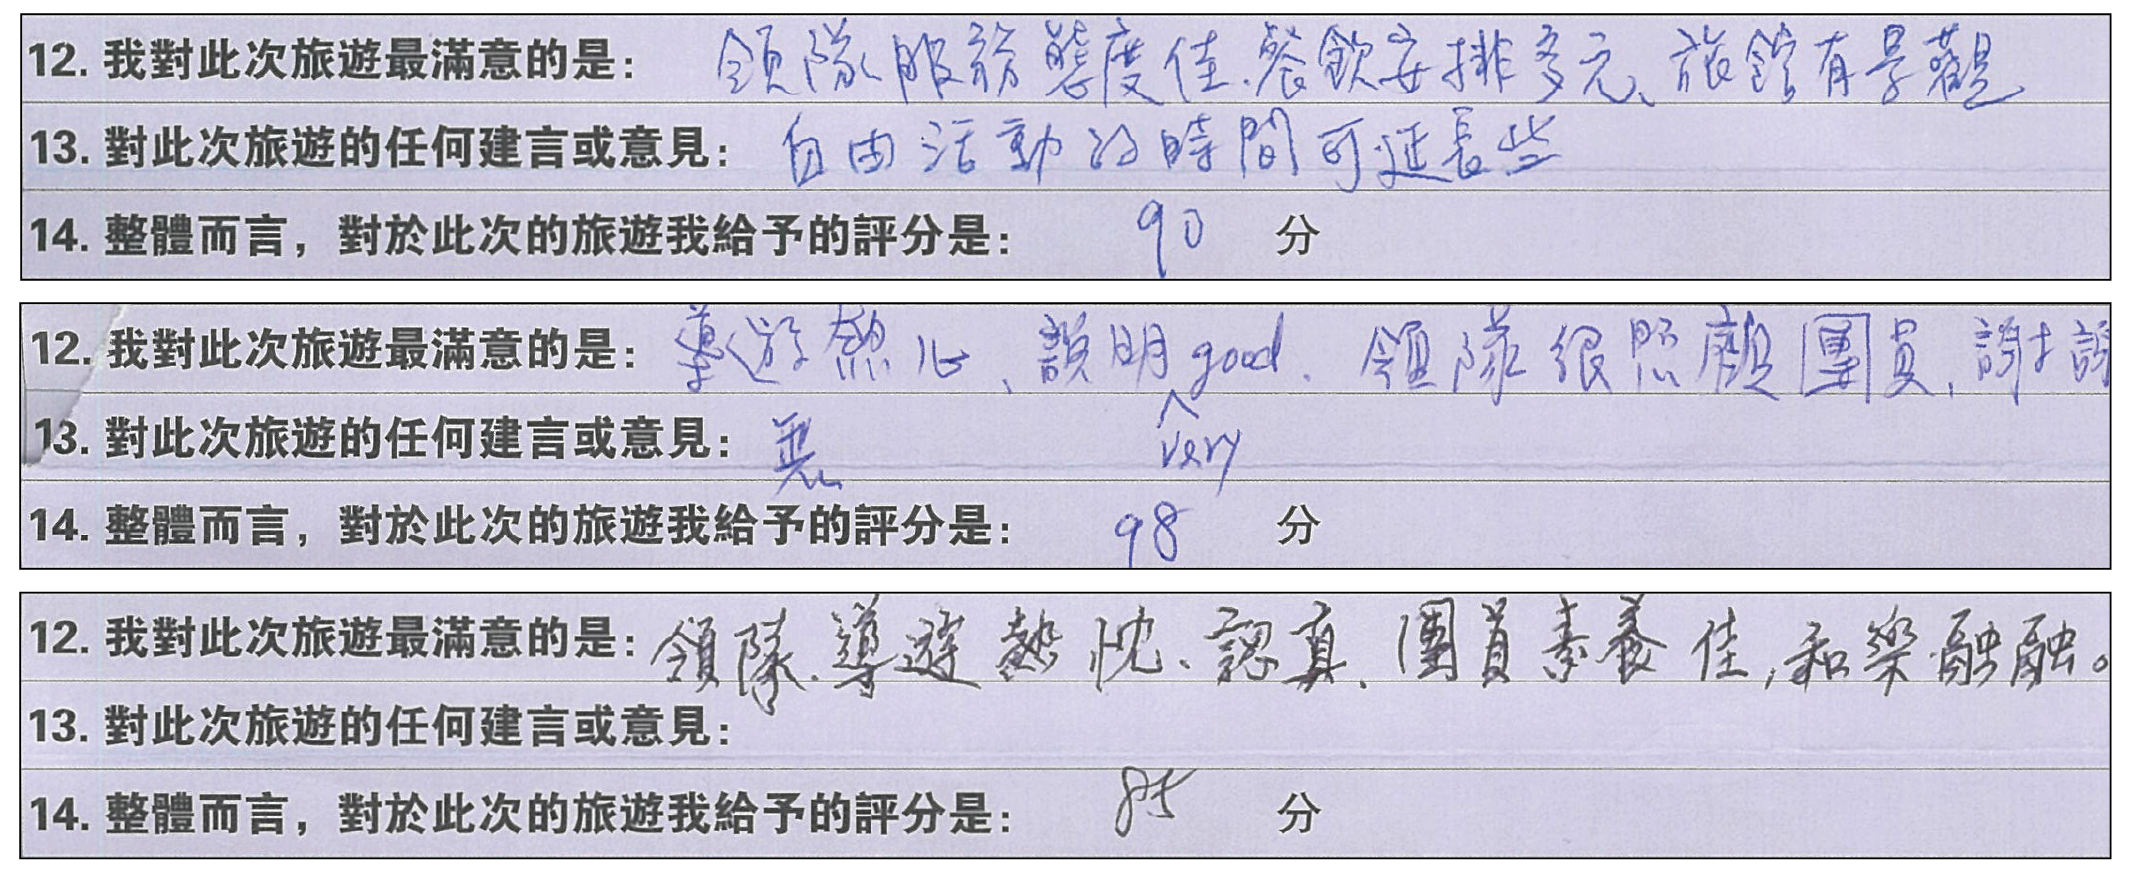 12. 我對此次旅遊最滿意的是: 領隊服務態度佳、餐飲安排多元、旅館有景觀
13. 對此次旅遊的任何建言或意見: 自由活動的時間可延長些
14. 整體而言，對於此次的旅遊我給予的評分是: 90 分
12. 我對此次旅遊最滿意的是: 導遊熱心、說明 very good. 領隊很照顧團員, 謝謝
13. 對此次旅遊的任何建言或意見: 無
14. 整體而言，對於此次的旅遊我給予的評分是: 98 分
12. 我對此次旅遊最滿意的是: 領隊、導遊熱忱、認真、團員素養佳,和樂融融。
13. 對此次旅遊的任何建言或意見:
14. 整體而言，對於此次的旅遊我給予的評分是: 85 分